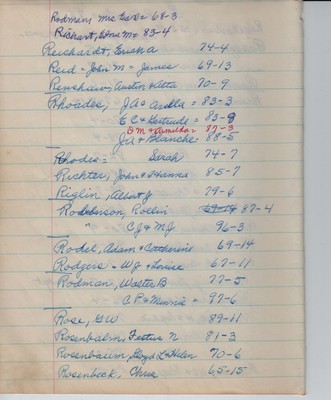 Rodman, Mrs Gar = 68-3
Richart, Edna M = 83-4
Reichardt, Erick A 74-4
Reid - John M = James 69-13
Renshaw, Austin & Etta 70-9
Rhoades, J A & Ardella = 83-3
E C & Gertrude = 83-9
B M & Armilda = 87-3
J A & Blanche = 88-5
Rhodes = Sarah 74-7
Richter, John & Hanna 85-7
Riglin, Albert J 79-6
Robinson, Rollin 69-14 87-4
" C J & M J 96-3
Rodel, Adam & Catherine 69-14
Rodgers - W J & Louise 67-11
Rodman, Walter B 77-5
C P & Minnie = 97-6
Rose, G W 89-11
Rosenbalm, Festus N 81-3
Rosenbaum, Lloyd L & Helen 70-6
Rosenbeck, Chris 65-15